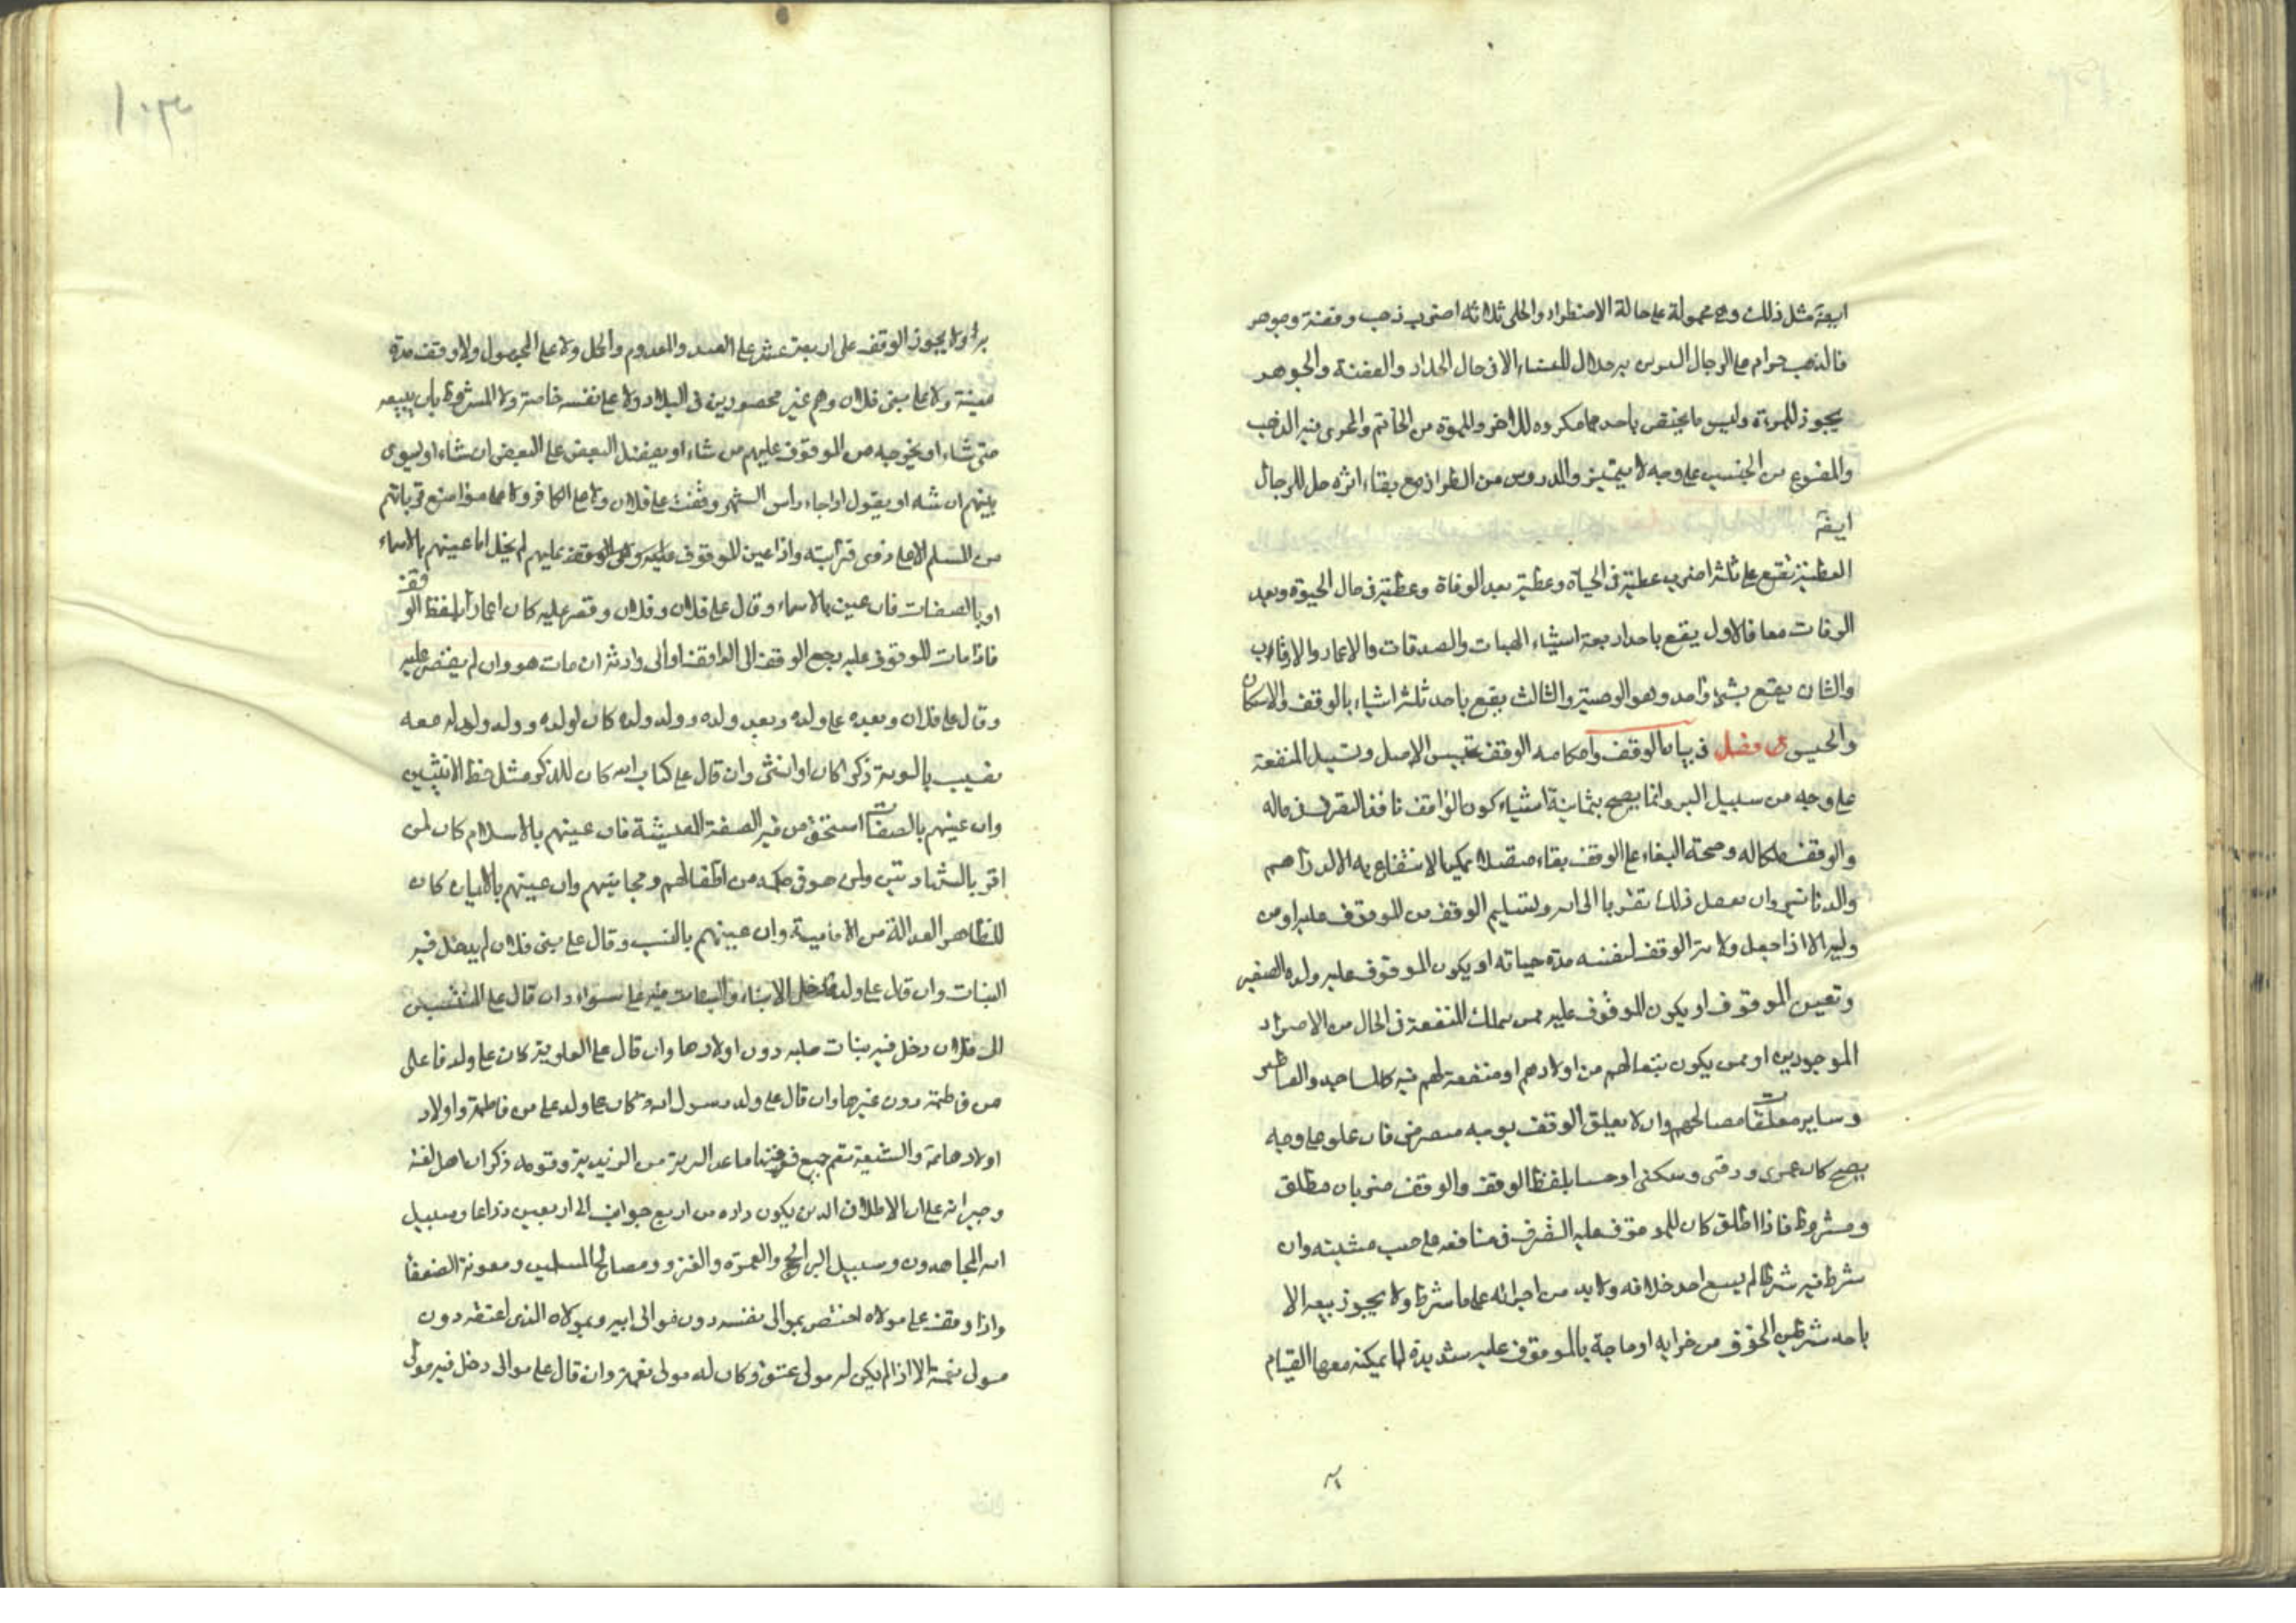 ايضا مثل ذلك وهي محمولة على حالة الاضطرار والحلى ثلاثة اضرب ذهب وفضة وجوهر
فالذهب حرام على الرجال التزين به حلال للنساء الا في حال الحداد والفضة والجوهر
يجوز للمرءة وليس ما يختص باحدهما مكروه للاخر وللمموه من الخاتم والمجرى فيه الذهب
والمصنوع من الجنسين على وجه لا يتميز والمدروس من الطراز مع بقاء اثره حل للرجال
ايضا
العطية تقع على ثلثة اضرب عطية في الحياة وعطية بعد الوفاة وعطية في حال الحيوة وبعد
الوفات معا فالاول يقع باحد اربعة اشياء الهبات والصدقات والاعمار والارقاب
والثان يقع بشئ واحد وهو الوصية والثالث يقع باحد ثلثة اشياء بالوقف والاسكان
والحبيس فصل في بيان الوقف واحكامه الوقف تحبيس الاصل وتسبيل المنفعة
على وجه من سبيل البر وانما يصح بثمانية اشياء كون الواقف نافذ التصرف في ماله
والوقف ملكا له وصحة البقاء على الوقف بقاء متصلا يمكن الانتفاع به الا الدراهم
والدنانير وان يفعل ذلك تقربا الى الله وتسليم الوقف من الموقوف عليه او من
وليه الا اذا جعل ولاية الوقف لنفسه مدة حياته او يكون الموقوف عليه ولده الصغير
وتعيين الموقوف او يكون الموقوف عليه ممن يملك المنفعة في الحال من الاحرار
الموجودين او ممن يكون تبعا لهم من اولادهم او منفعة لهم فيه كالمساجد والقناطر
وساير متعلقات مصالحهم وان لا يعلق الوقف بوجه منقرض فان علق على وجه
يصح كان عمرى ورقبى وسكنى او حبسا بلفظ الوقف والوقف ضربان مطلق
ومشروط فاذا اطلق كان للموقوف عليه التصرف في منافعه على حسب مشيته وان
شرط فيه شرطا لم يسع احد خلافه ولا بد من اجرائه على ما شرط ولا يجوز بيعه الا
باحد شرطين الخوف من خرابه او حاجة بالموقوف عليه شديدة لا يمكنه معها القيام
١٠٣
به ولا يجوز الوقف على اربعة عشر على العبد والمعدوم والحمل ولا على المجهول ولا وقف مدة
معينة ولا على بني فلان وهم غير محصورين في البلاد ولا على نفسه خاصة ولا المشروط بان يبيعه
متى شاء او يخرجه من الموقوف عليهم من شاء او يفضل البعض على البعض ان شاء او يسوى
بينهم ان شاء او يقول اذا جاء رأس الشهر وقفت على فلان ولا على الكافر ولا على مواضع قرباتهم
من المسلم الا على ذوى قرابته واذا عين الموقوف عليه وهي الوقف عليهم لم يخل اما عينهم بالاسماء
او بالصفات فان عين بالاسماء وقال على فلان وفلان وقصر عليه كان اعمارا بلفظ الوقف
فاذا مات الموقوف عليه رجع الوقف الى الواقف او الى وارثه ان مات هو وان لم يقتصر عليه
وقال على فلان وبعده على ولده وبعد ولده وولد ولده كان لولده وولد ولده معه
نصيب بالسوية ذكرا كان او انثى وان قال على كتاب الله كان للذكر مثل حظ الانثيين
وان عينهم بالصفات استحق من فيه الصفة المعينة فان عينهم بالاسلام كان لمن
اقر بالشهادتين ولمن هو في حكمه من اطفالهم ومجانينهم وان عينهم بالايمان كان
للظاهر العدالة من الامامية وان عينهم بالنسب وقال على بني فلان لم يدخل فيه
البنات وان قال على ولده دخل الابناء والبنات فيه على سواء وان قال على المنتسبين
الى فلان دخل فيه بنات صلبه دون اولادها وان قال على العلوية كان على ولد فاعلى
من فاطمة دون غيرها وان قال على ولد رسول الله كان على ولد على من فاطمة واولاد
اولادهامة والشيعة تعم جميع فرقتنا ما عدا البترية من الزيدية وقومه ذكران اهل لغته
وجيرانه على الاطلاق الذين يكون داره من اربع جوانب الى اربعين ذراعا وسبيل
الله المجاهدون وسبيل البر الحج والعمرة والغزو ومصالح المسلمين ومعونة الضعفا
واذا وقف على مولاه اختص بموالى نفسه دون موالى ابيه وبمولاه الذى اعتقه دون
مولى نعمته الا اذا لم يكن له مولى عتق وكان له مولى نعمة وان قال على موالى دخل فيه مولى